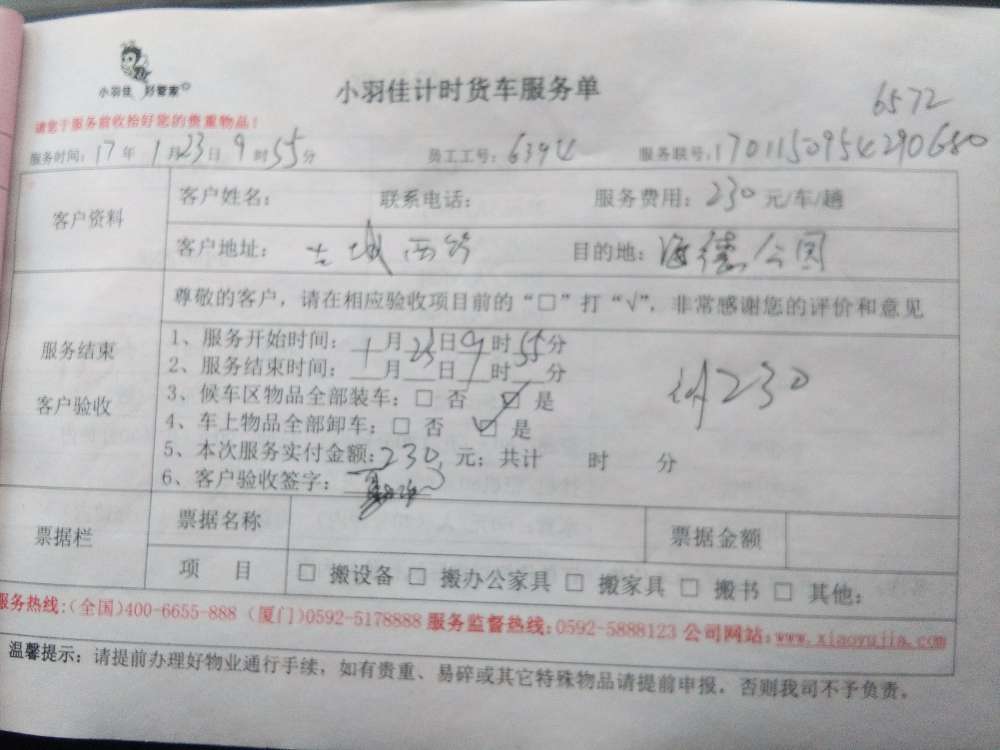 小羽佳 好管家
小羽佳计时货车服务单
6572
请您于服务前收拾好您的贵重物品！
服务时间：17年1月23日9时55分 员工工号：6394 服务联号：1701150954290680
客户资料
客户姓名： 联系电话： 服务费用：230元/车/趟
客户地址：古城西路 目的地：海德公园
服务结束
客户验收
尊敬的客户，请在相应验收项目前的“□”打“√”，非常感谢您的评价和意见
1、服务开始时间：1月23日9时55分
2、服务结束时间：___月___日___时___分
3、候车区物品全部装车：□ 否 □ 是
4、车上物品全部卸车：□ 否 □ 是
5、本次服务实付金额：230元；共计 时 分
6、客户验收签字：
230
票据栏
票据名称 票据金额
项 目 □ 搬设备 □ 搬办公家具 □ 搬家具 □ 搬书 □ 其他：
服务热线：（全国）400-6655-888（厦门）0592-5178888 服务监督热线：0592-5888123 公司网站：www.xiaoyujia.com
温馨提示：请提前办理好物业通行手续，如有贵重、易碎或其它特殊物品请提前申报，否则我司不予负责。